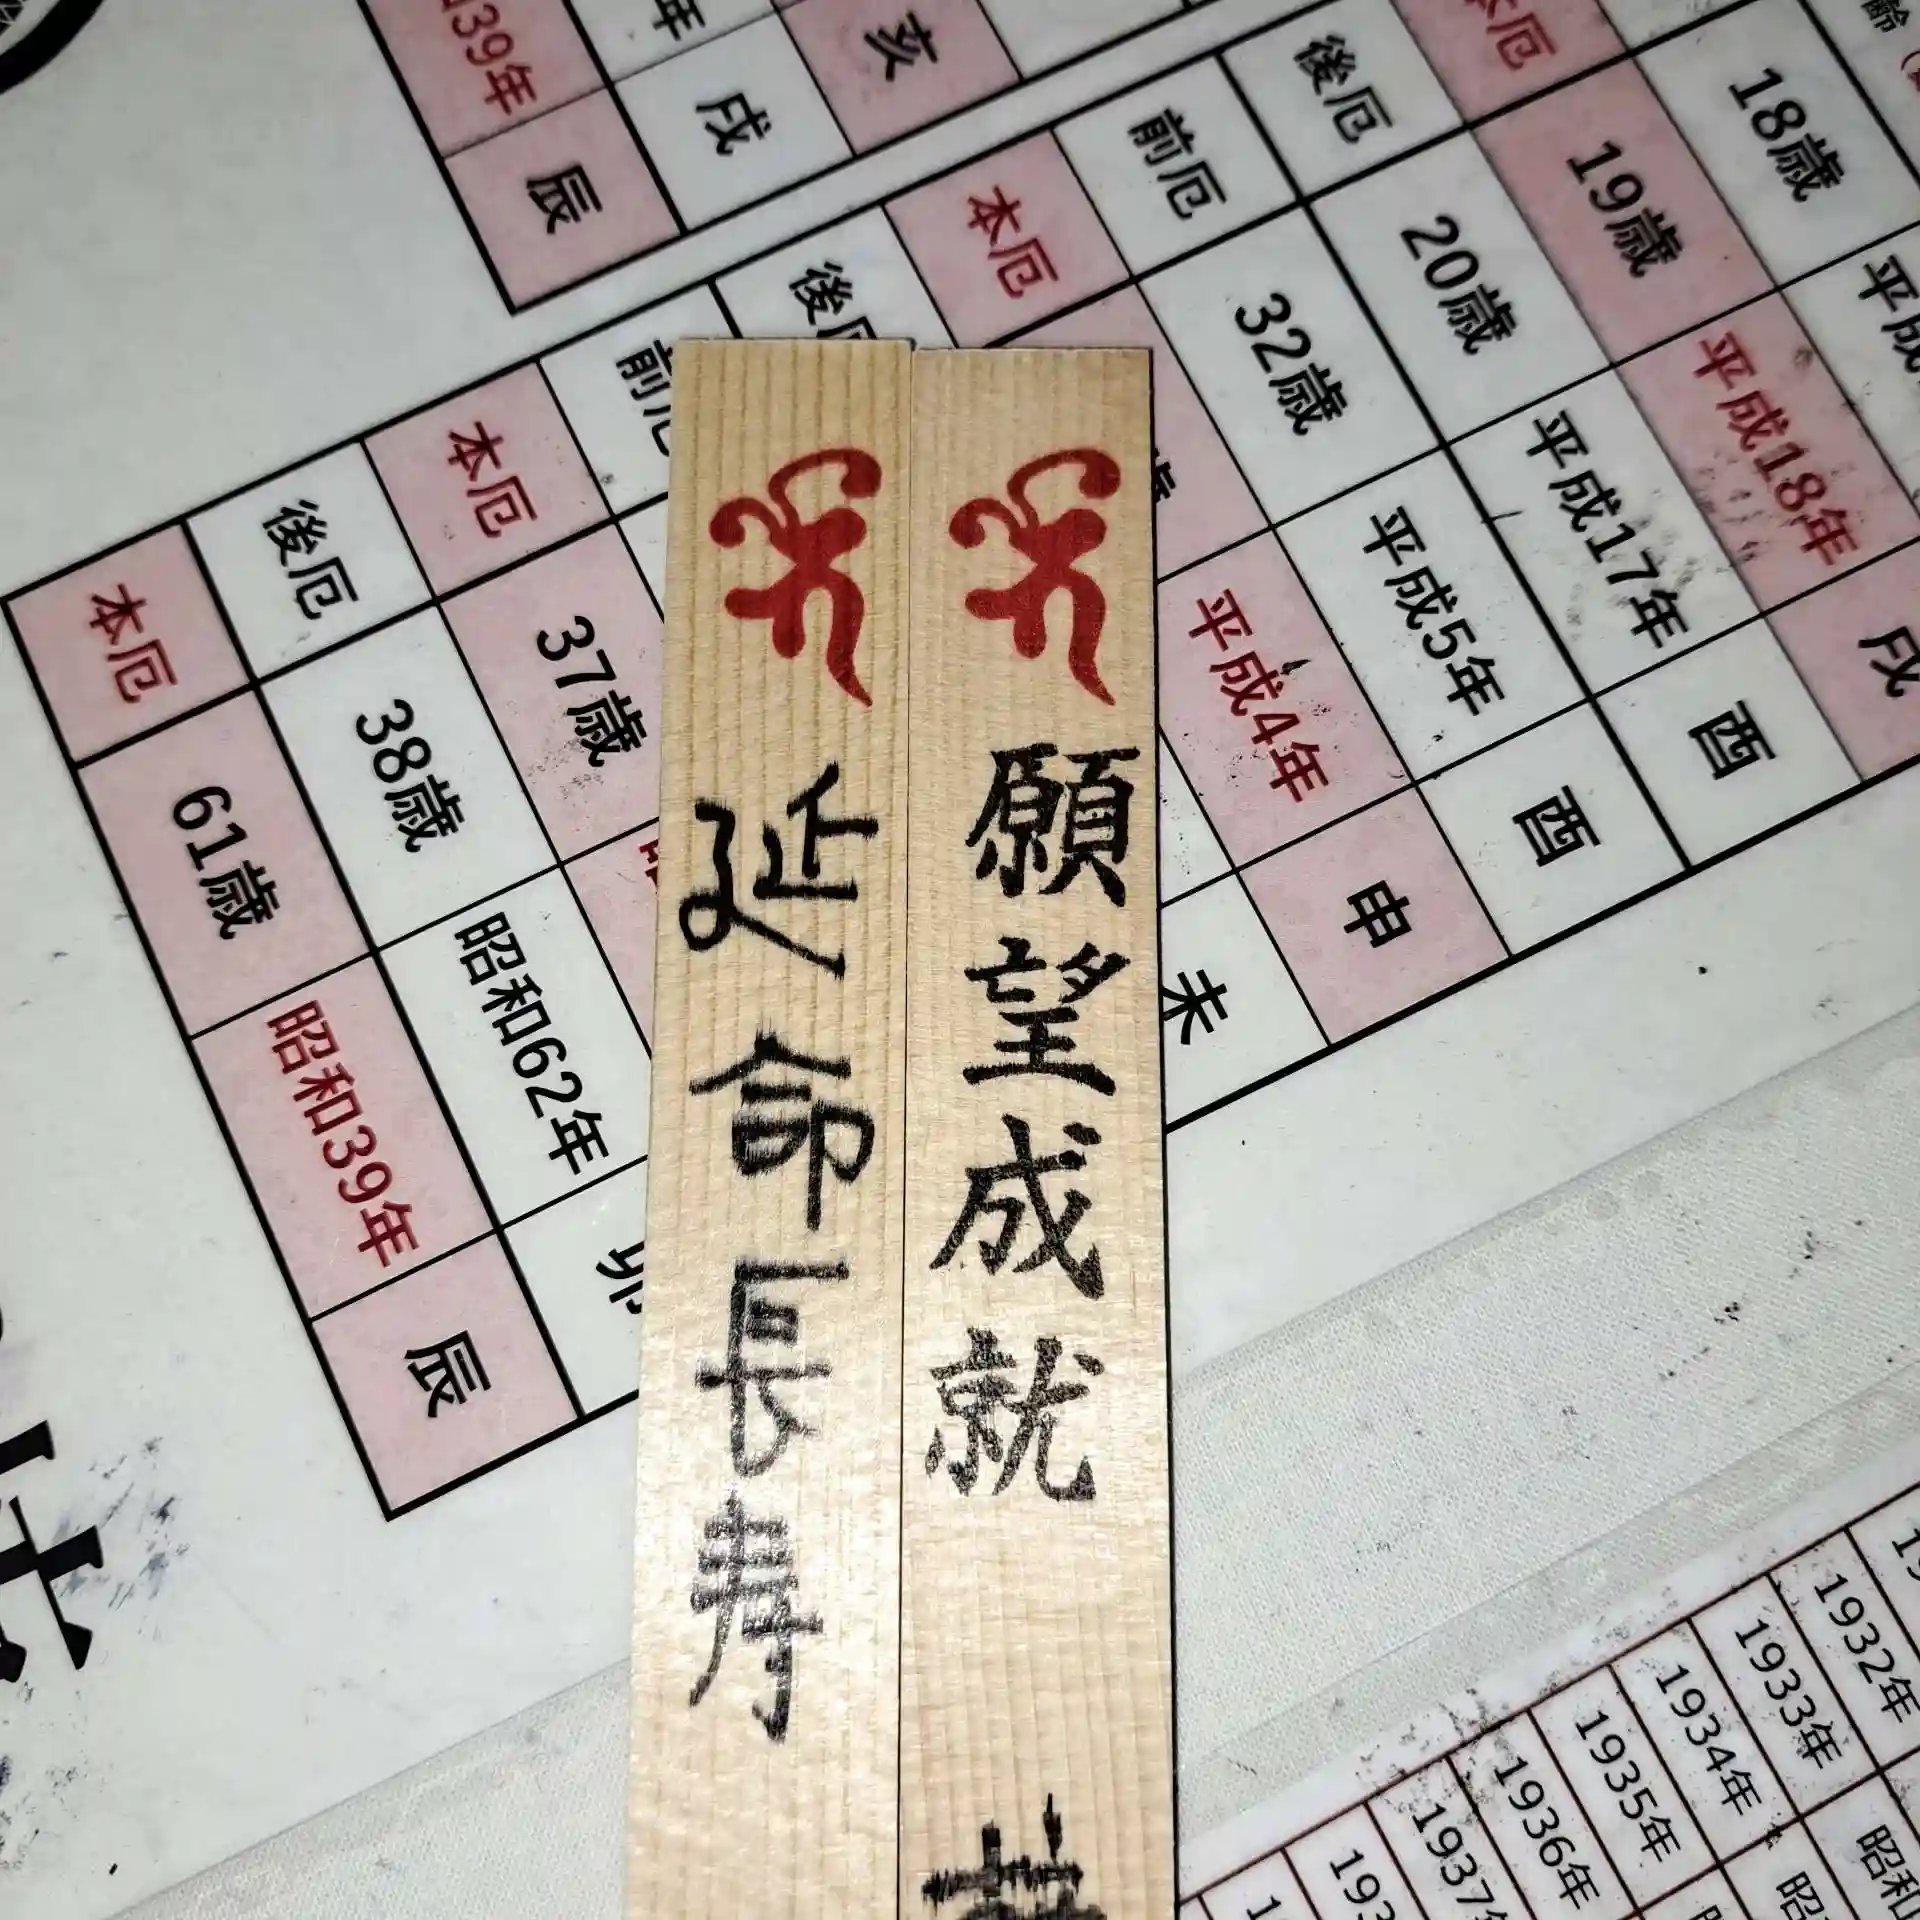 願望成就
延命長寿
亥
戌
39年
辰
18歳
19歳
平成18年
戌
後厄
20歳
平成17年
酉
前厄
32歳
平成5年
酉
本厄
平成4年
申
未
本厄
37歳
後厄
38歳
昭和62年
卯
本厄
61歳
昭和39年
辰
1932年
1933年
1934年
1935年
1936年
1937